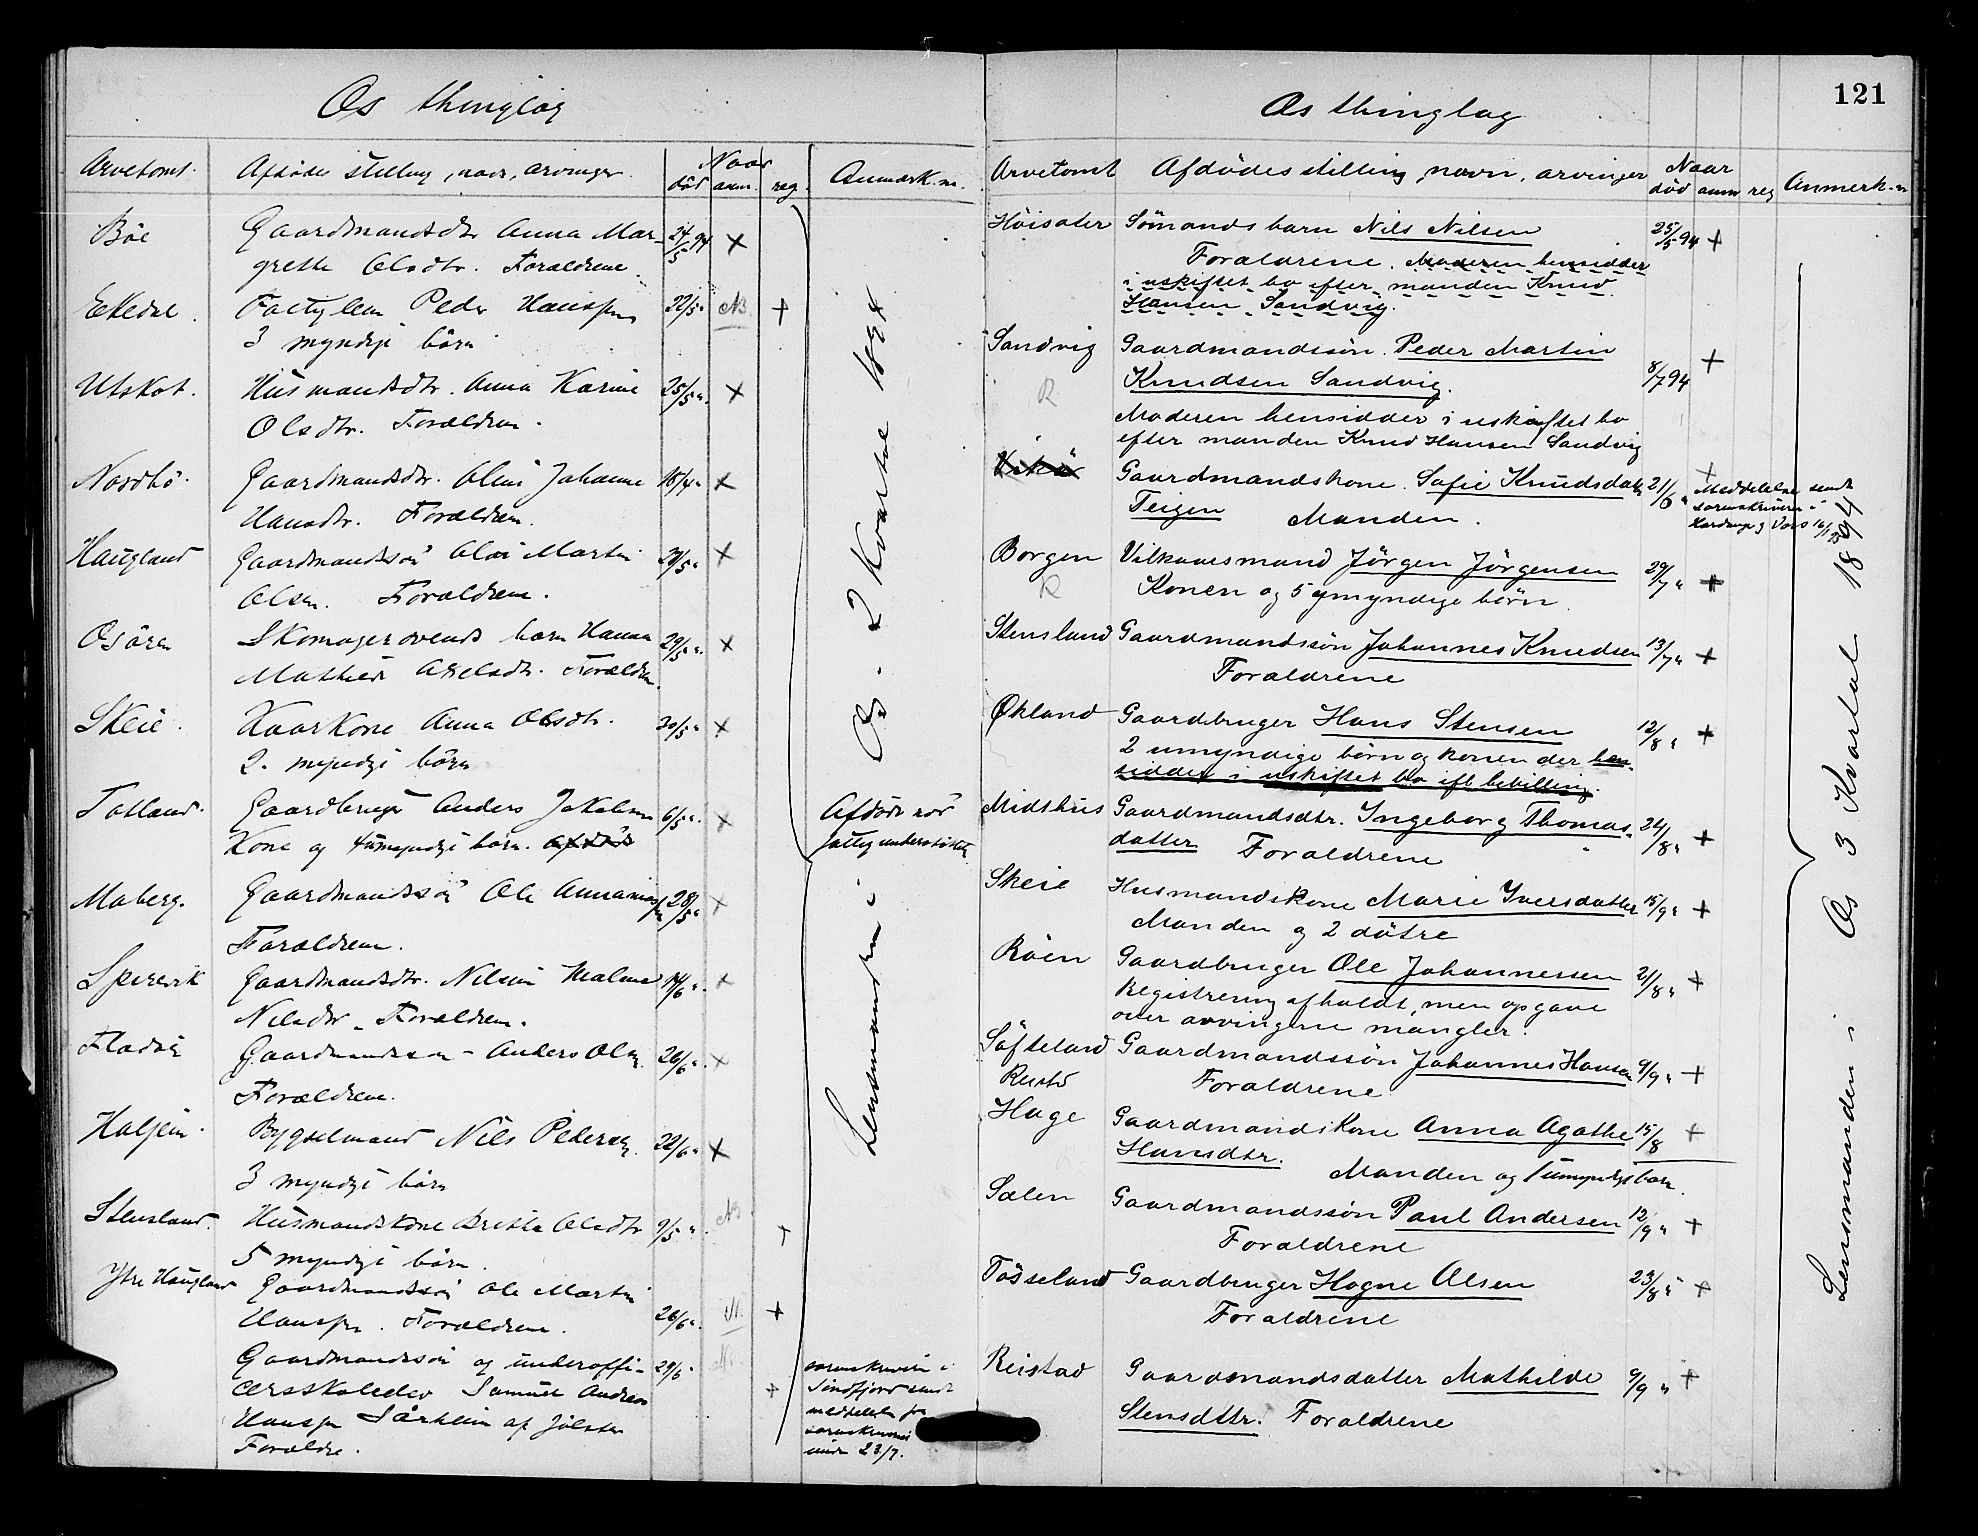 Os thinglag
Arvetomt. Afdødes stilling, navn, arvinger. Naar død anm. reg. Anmærkn.
Bøe Gaardmandsdtr Anna Mar- 24/5 94 x
grethe Olsdtr. Forældrene.
Eikedal. Peder Hanssen 22/5 " NB +
3 myndige børn
Utskot. Husmandsdtr. Anna Karine 25/5 ". x
Olsdtr. Forældrene.
Nordbø. Gaardmandsdtr. Johanne 18/4 " x
Hansdtr. Forældrene.
Haugland Gaardmandssøn Martin x
Olsen. Forældrene.
Osøren Skomagersvends barn Hanna 29/5 ". x
Mathea Axelsdtr. Forældrene.
Skeie. Kaarkone Anna Olsdtr. 30/5 " x
2 myndige børn
Tøtland. Gaardbruger Anders Jakobsen 6/5 ". x Afdøde var
Kone og 4 umyndige børn. fattigunderstøttet.
Moberg. Gaardmandssøn Ole Annanias- sen 28/5 " x
Forældrene.
Sperrevik Gaardmandsdtr. Nilsine Malene 14/6 ". x
Nilsdtr. Forældrene.
Gaardmandssøn - Anders Olsen 26/6 ". x
Forældrene.
Haljem. Bygselmand Nils Pedersen. 22/6 " x
3 myndige børn
Stensland. Husmandskone Britha Olsdtr 9/5 ". NB +
5 myndige børn.
Ytre Haugland Gaardmandssøn Ole Martin
Hanssen. Forældrene. 26/6 ". +
Gaardmandssøn og underoffi- 29/6 " sorenskriveren i
cersskoleelev Samuel Andreas + Søndfjord sendt
Hanssen Sårheim af Jølster meddelelse fra
Forældre. sorenskriveri
23/7.
Os - 2 Kvartal 1894
Lensmanden i
Os thinglag 121
Arvetomt Afdødes stilling, navn, arvinger Naar død anm reg Anmerk-n
Høisæter Sömands barn Nils Nilsen 25/5 94 +
Forældrene. Moderen hensidder
i uskiftet bo efter manden Knud
Hansen Sandvig.
Sandvig Gaardmandssøn. Peder Martin +
R Knudsen Sandvig. 8/7 94
Moderen hensidder i uskiftet bo
efter manden Knud Hansen Sandvig
Vikør Gaardmandskone. Sofie Knudsdatter 21/6 " + Meddelelse sendt
Teigen Manden. sorenskriveren i
Hardanger og Voss 16/1 95
Borgen Vilkaarsmand Jörgen Jörgensen 29/7 " +
R Konen og 5 umyndige börn.
Stensland Gaardmandssøn Johannes Knudsen 13/7 " +
Forældrene
Økland Gaardbruger Hans Stensen 12/8 " +
2 umyndige børn og konen der hen-
sidder i uskiftet bo eft bevilling.
Midthus Gaardmandsdtr. Ingeborg Thomas- 24/8 " +
datter Forældrene
Skeie Husmandskone Marie Iversdatter 15/9 " +
Manden og 2 døtre
Röen Gaardbruger Ole Johannessen 21/8 " +
Registrering afholdt, men opgave
over arvingene mangler.
Søfteland Gaardmandssøn Johannes Hansen 9/9 " +
Forældrene
Hage Gaardmandskone Anna Agathe 15/8 +
Hansdtr. Manden og 1 umyndigt barn.
Sælen Gaardmandssøn Paul Andersen 12/9 " +
Forældrene
Tøsseland Gaardbruger Hogne Olsen 23/8 " +
Forældrene
Reistad Gaardmandsdatter Mathilde 9/9 " +
Stensdtr. Forældrene
Lensmanden i Os 3 Kvartal 1894